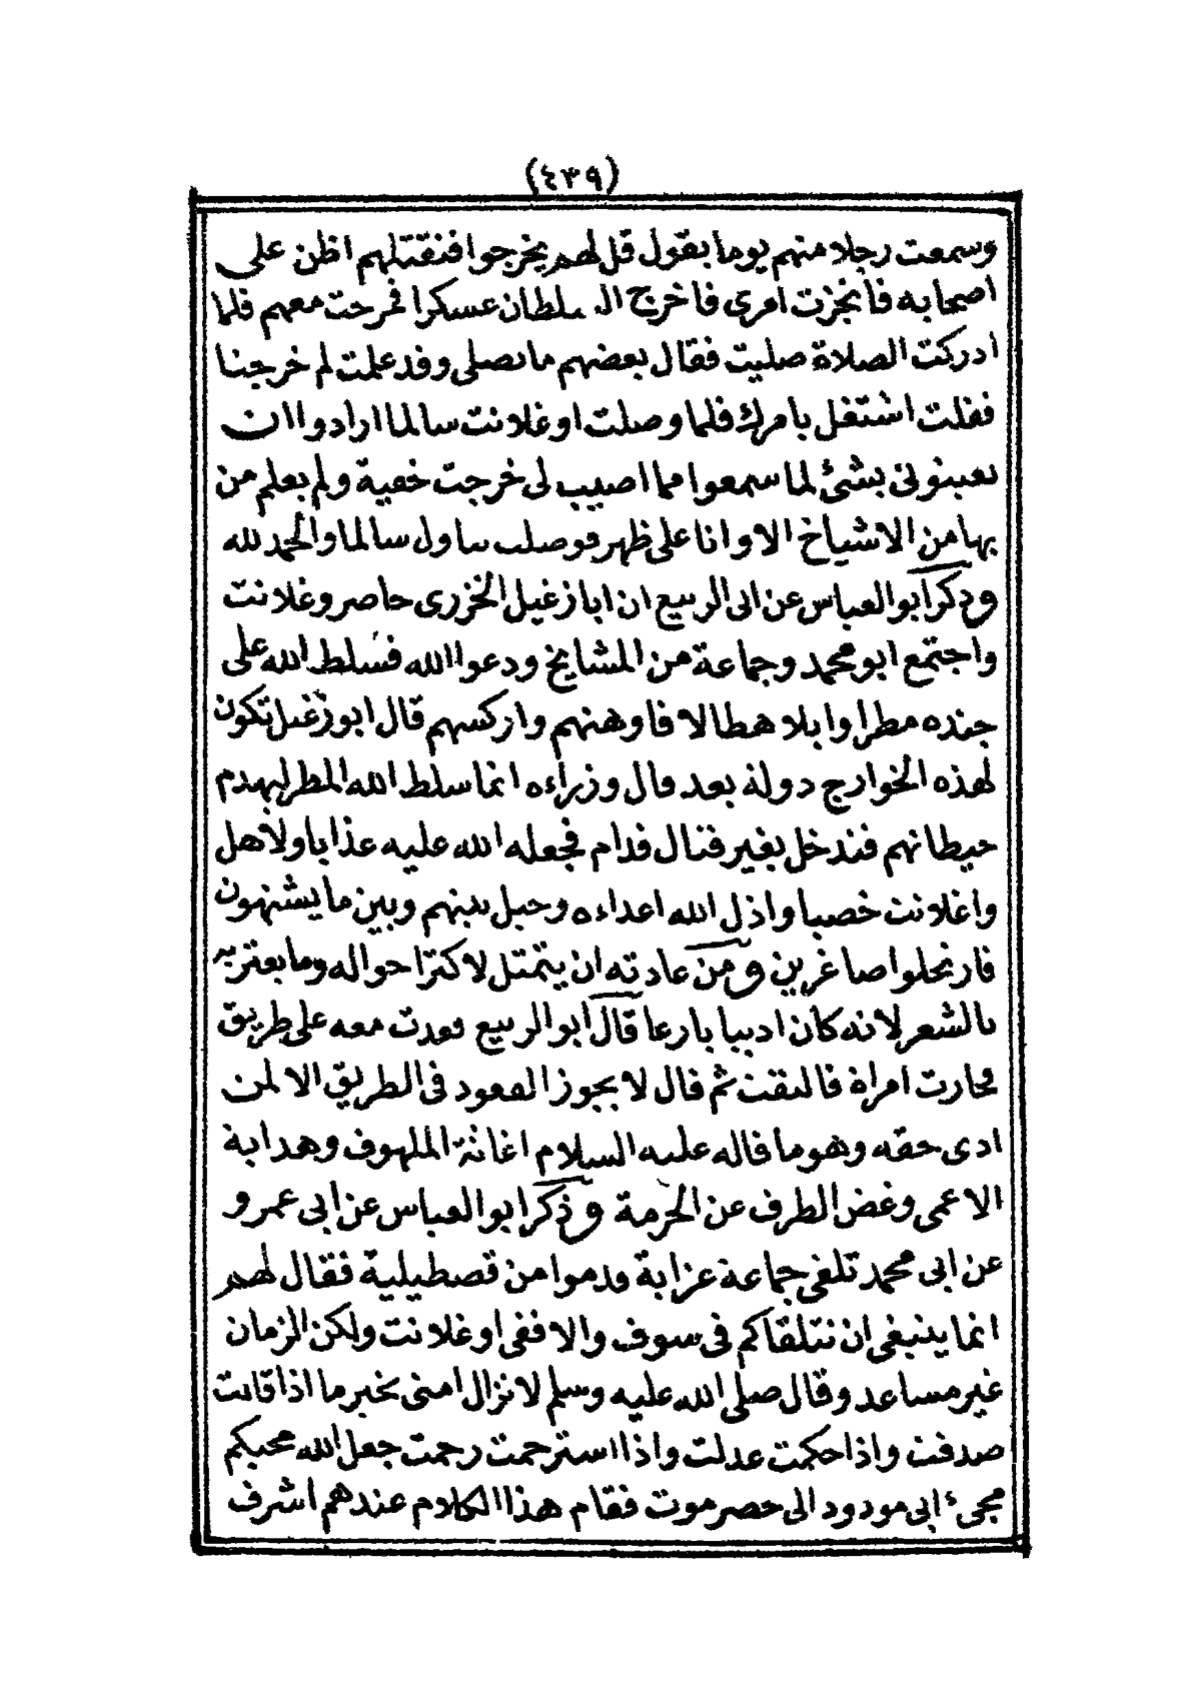 (٤٣٩)
وسمعت رجلا منهم يوما يقول قل لهم يخرجوا فنقتلهم اظن على
اصحابه فانجزت امرى فاخرج السلطان عسكرا فخرجت معهم فلما
ادركت الصلاة صليت فقال بعضهم ما نصلى وقد علمت لم خرجنا
فقلت اشتغل بامرك فلما وصلت اوغلانت سالما ارادوا ان
يعينونى بشئ لما سمعوا مما اصيب لى خرجت خفية ولم يعلم من
بها من الاشياخ الا وانا على ظهر فوصلت ساول سالما والحمد لله
وذكر ابو العباس عن ابى الربيع ان ابا زغيل الخزرى حاصر وغلانت
واجتمع ابو محمد وجماعة من المشايخ ودعوا الله فسلط الله على
جنده مطرا وابلا هطالا فاوهنهم واركسهم قال ابو زغيل تكون
لهذه الخوارج دولة بعد قال وزراءه انما سلط الله المطر ليهدم
حيطانهم فندخل بغير قتال فدام فجعله الله عليه عذابا ولاهل
واغلانت خصبا واذل الله اعداءه وحيل بينهم وبين ما يشتهون
فارتحلوا صاغرين ومن عادته ان يتمثل لاكثر احواله وما يعتريه
بالشعر لانه كان اديبا بارعا قال ابو الربيع قعدت معه على طريق
فجازت امراة فالتفت ثم قال لا يجوز القعود فى الطريق الا لمن
ادى حقه وهو ما قاله عليه السلام اغاثة الملهوف وهداية
الاعمى وغض الطرف عن الحرمة وذكر ابو العباس عن ابى عمرو
عن ابى محمد تلقى جماعة عزابة قدموا من قصطيلية فقال لهم
انما ينبغى ان نتلقاكم فى سوف والا ففى اوغلانت ولكن الزمان
غير مساعد وقال صلى الله عليه وسلم لا تزال امتى بخير ما اذا قالت
صدقت واذا حكمت عدلت واذا استرحمت رحمت جعل الله محبكم
مجىء ابى مودود الى حضرموت فقام هذا الكلام عندهم اشرف